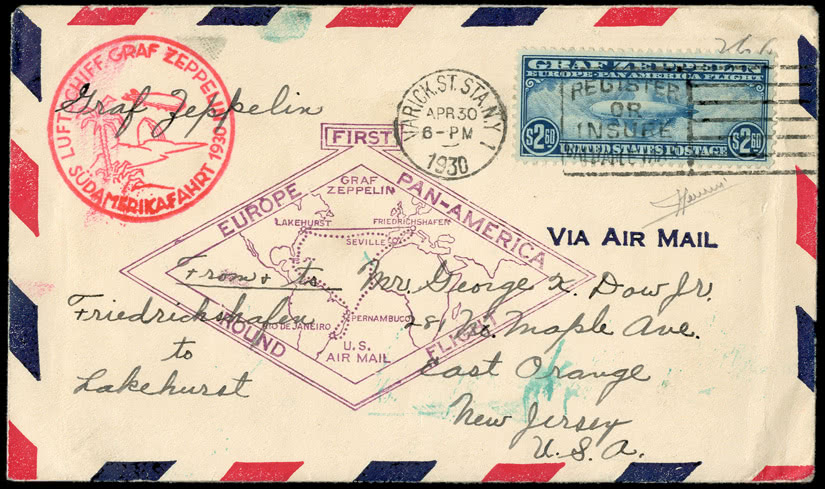 LUFTSCHIFF GRAF ZEPPELIN
SÜDAMERIKAFAHRT 1930
Graf Zeppelin
VARICK.ST.STA.N.Y. 1
APR 30
6-PM
1930
GRAF ZEPPELIN
EUROPE-PAN-AMERICA FLIGHT
$2.60
$2.60
UNITED STATES POSTAGE
REGISTER
OR
INSURE
VALUABLE MAIL
FIRST
EUROPE PAN-AMERICA
ROUND FLIGHT
GRAF
ZEPPELIN
LAKEHURST
FRIEDRICHSHAFEN
SEVILLE
PERNAMBUCO
RIO DE JANEIRO
U.S.
AIR MAIL
VIA AIR MAIL
From & to
Friedrichshafen
to
Lakehurst
Mr. George X. Dow Jr.
281 No. Maple Ave.
East Orange
New Jersey
U.S.A.